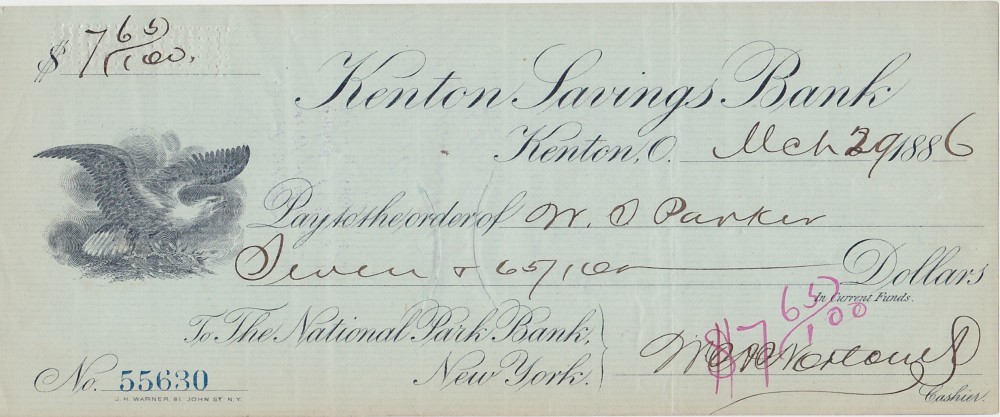 $ 7 65/100.
Kenton Savings Bank
Kenton, O. Mch 29 1886
Pay to the order of W. S Parker
Seven & 65/100 Dollars
In Current Funds.
To The National Park Bank,
New York.
$7 65/100
No. 55630
Cashier.
J. H. WARNER, 91 JOHN ST. N.Y.